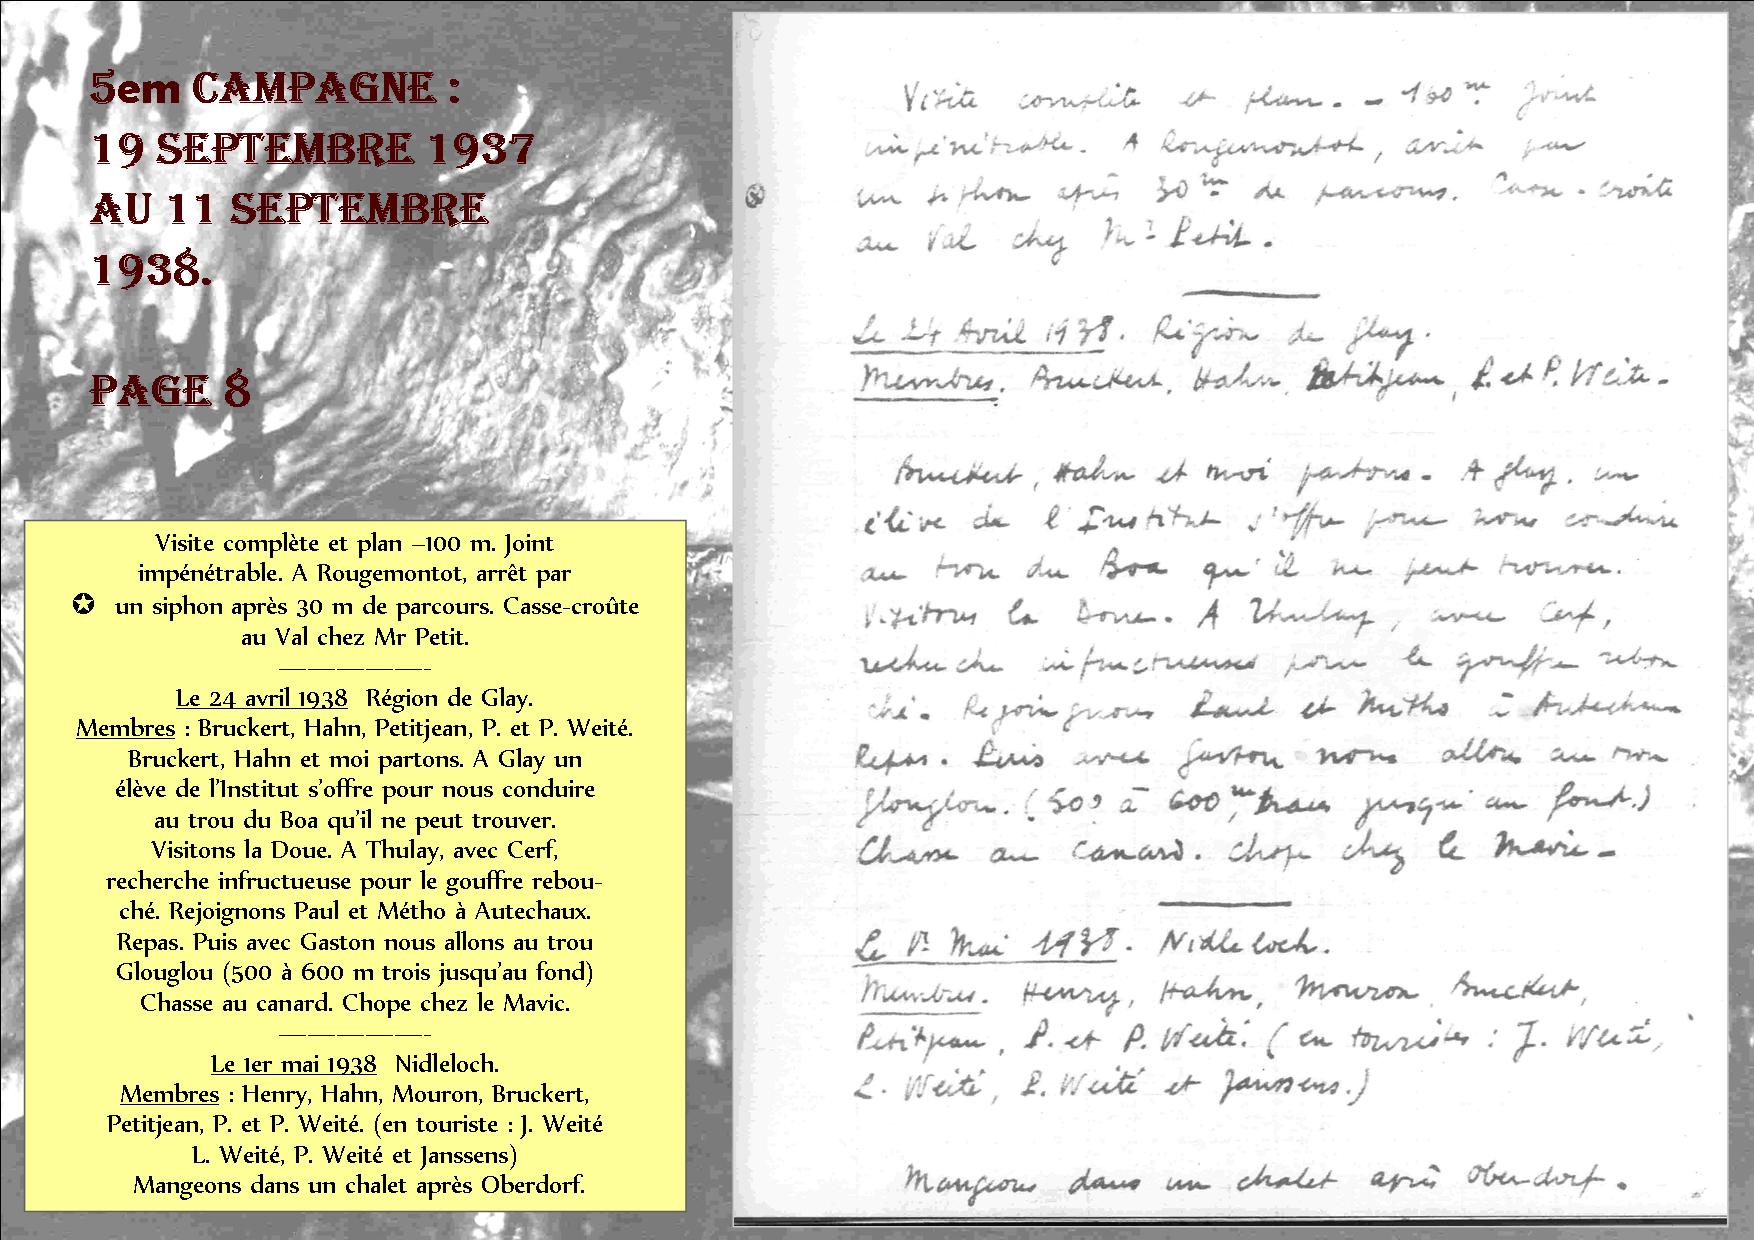 5em CAMPAGNE :
19 SEPTEMBRE 1937
AU 11 SEPTEMBRE
1938.
PAGE 8
Visite complète et plan –100 m. Joint
impénétrable. A Rougemontot, arrêt par
✪ un siphon après 30 m de parcours. Casse-croûte
au Val chez Mr Petit.
Le 24 avril 1938 Région de Glay.
Membres : Bruckert, Hahn, Petitjean, P. et P. Weité.
Bruckert, Hahn et moi partons. A Glay un
élève de l'Institut s'offre pour nous conduire
au trou du Boa qu'il ne peut trouver.
Visitons la Doue. A Thulay, avec Cerf,
recherche infructueuse pour le gouffre rebou-
ché. Rejoignons Paul et Métho à Autechaux.
Repas. Puis avec Gaston nous allons au trou
Glouglou (500 à 600 m trois jusqu'au fond)
Chasse au canard. Chope chez le Mavic.
Le 1er mai 1938 Nidleloch.
Membres : Henry, Hahn, Mouron, Bruckert,
Petitjean, P. et P. Weité. (en touriste : J. Weité
L. Weité, P. Weité et Janssens)
Mangeons dans un chalet après Oberdorf.
Visite complète et plan. – 160 m. Joint
impénétrable. A Rougemontot, arrêt par
un siphon après 30 m de parcours. Casse-croûte
au Val chez Mr Petit.
Le 24 Avril 1938. Région de Glay.
Membres. Bruckert, Hahn, Petitjean, P. et P. Weité.
Bruckert, Hahn et moi partons. A Glay, un
élève de l'Institut s'offre pour nous conduire
au trou du Boa qu'il ne peut trouver.
Visitons la Doue. A Thulay, avec Cerf,
recherche infructueuses pour le gouffre rebou
ché. Rejoignons Paul et Métho à Autechaux
Repas. Puis avec Gaston nous allons au trou
Glouglou. (500 à 600 m, jusqu'au fond.)
Chasse au canard. Chope chez le
Le 1er Mai 1938. Nidleloch.
Membres. Henry, Hahn, Mouron, Bruckert,
Petitjean, P. et P. Weité. (en touristes : J. Weité,
L. Weité, P. Weité et Janssens.)
Mangeons dans un chalet après Oberdorf.